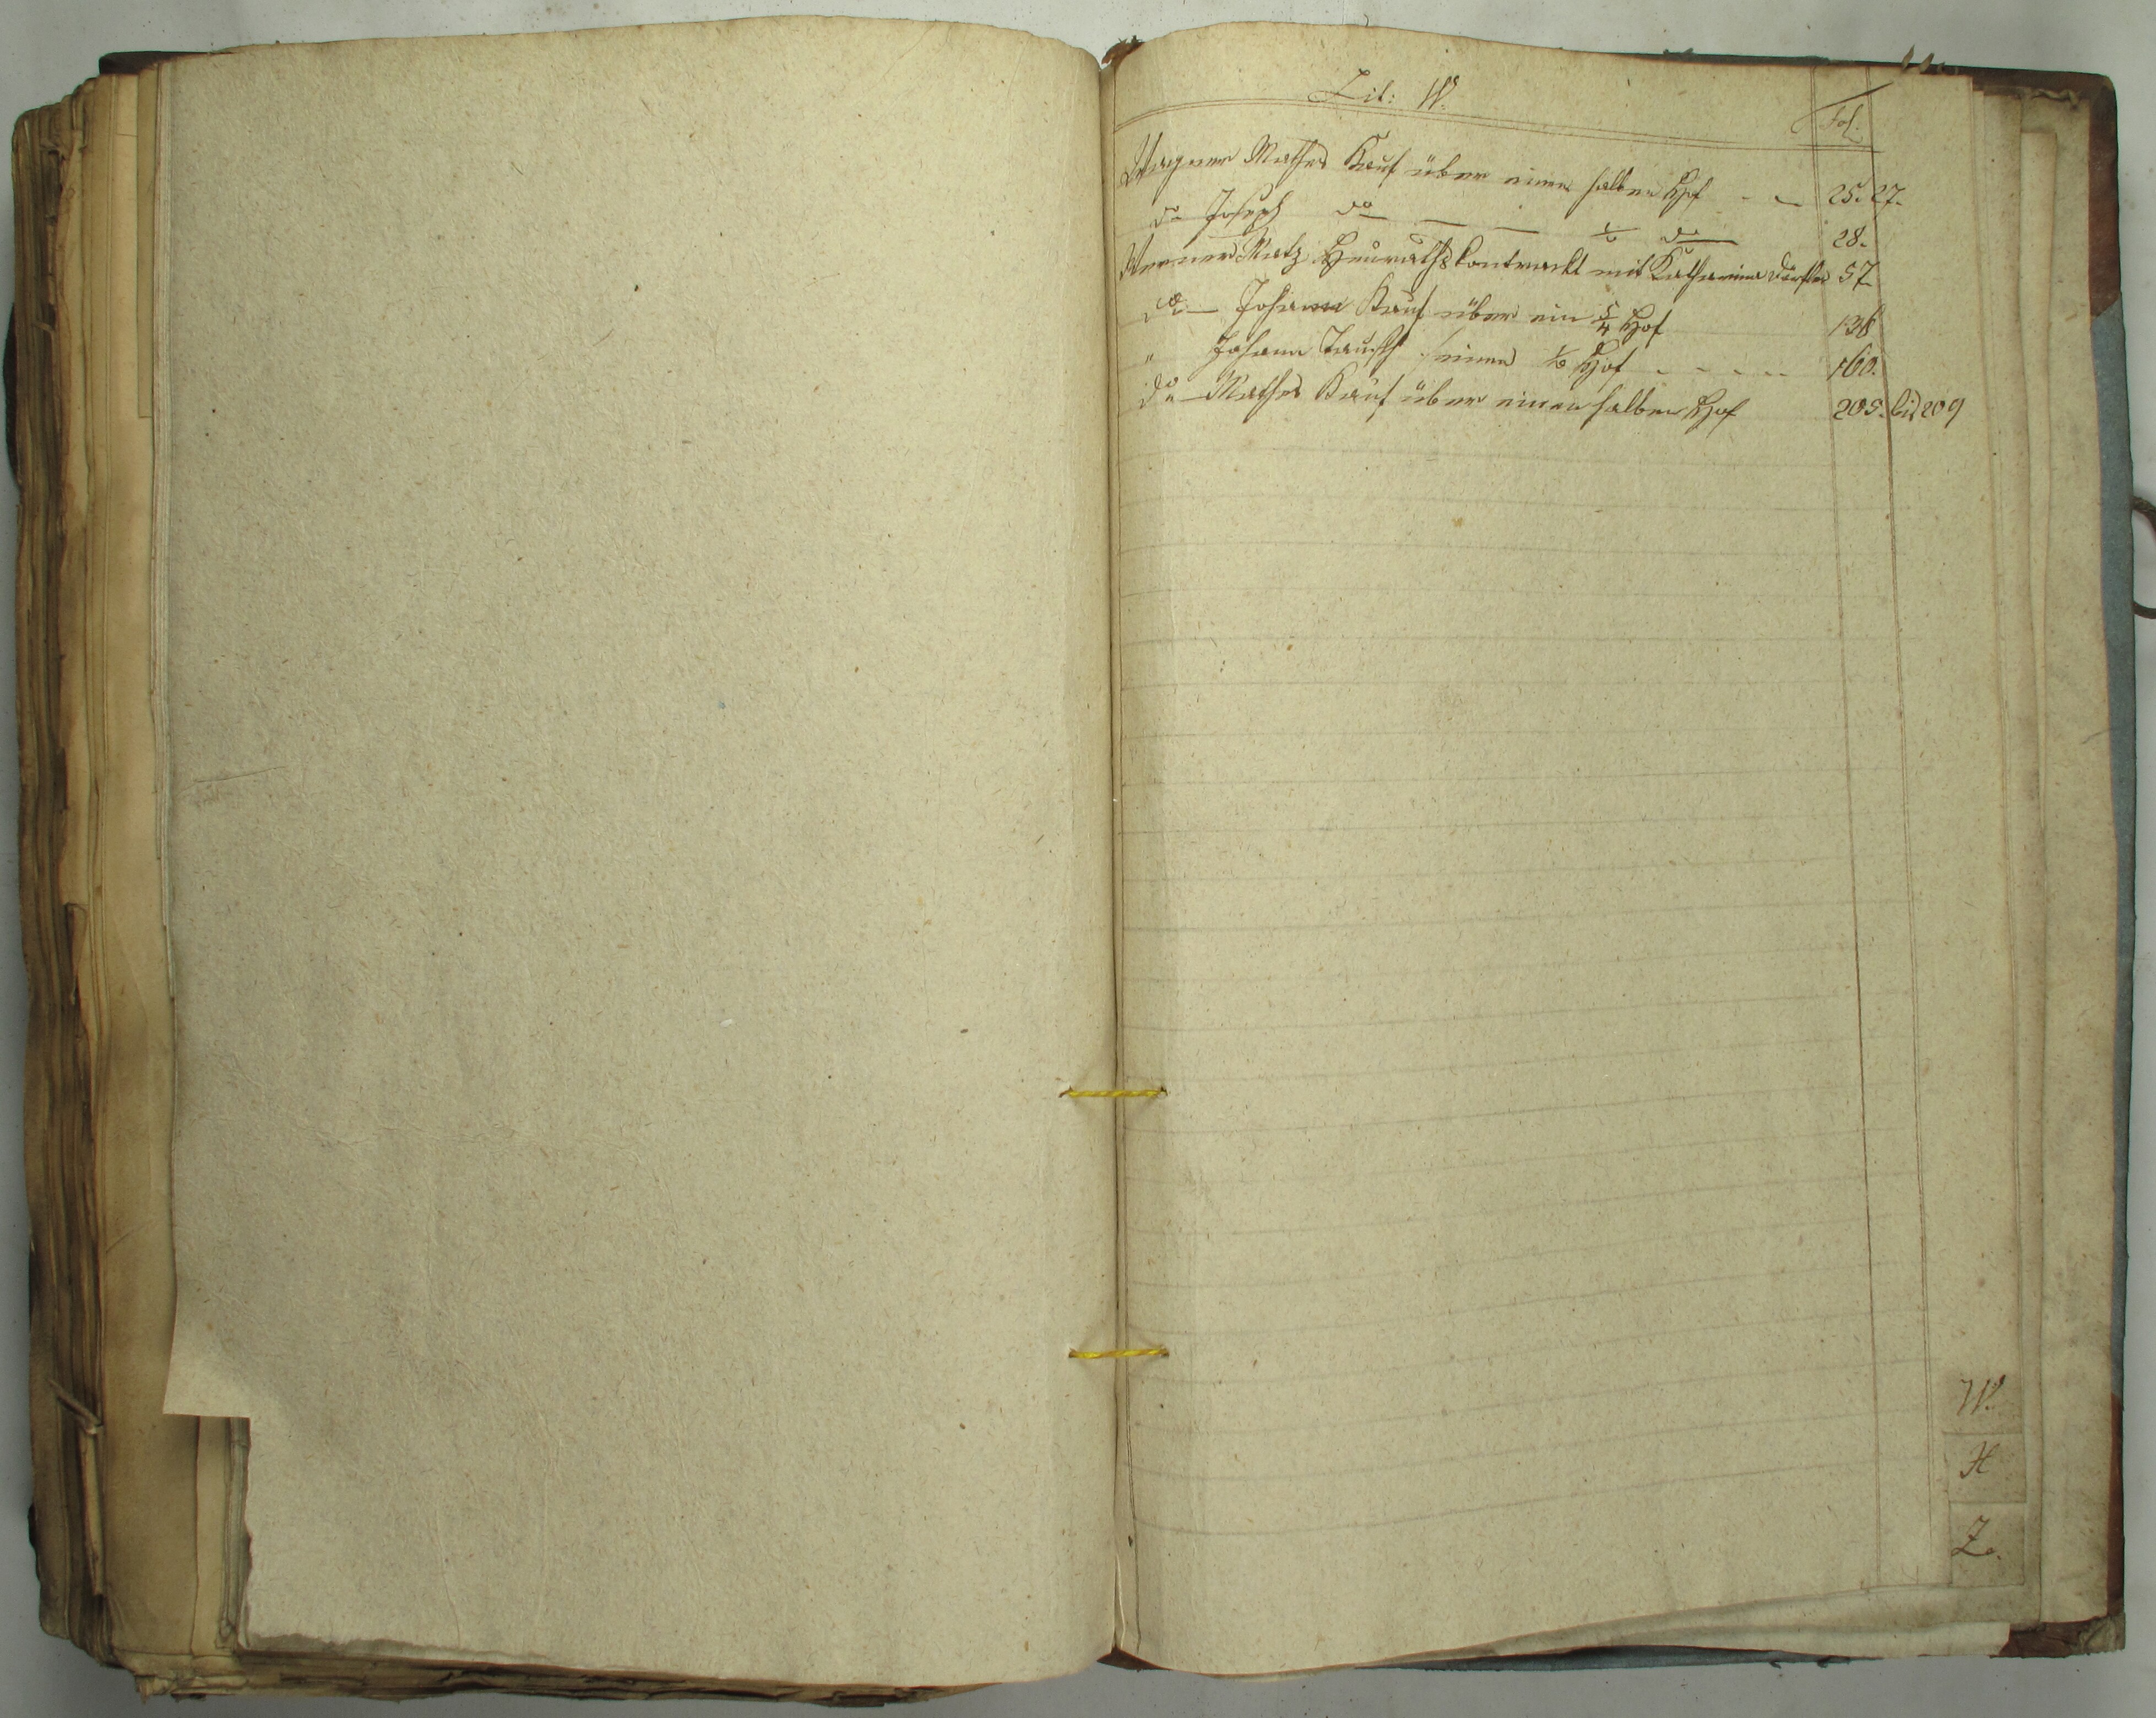 Lit: W.
Fol.
Wagner Mathes Kauf über einen halben Hof - - 25. 27.
do Joseph do — — ½ do 28.
Werner Matz Heurathskontrackt mit Katharina 57.
do — Johann Kauf über ein 5/4 Hof 138
" Johann Tauscht seinen ½ Hof - - - - - 160.
do — Mathes Kauf über einen halben Hof 205. bis 209
W.
X
Z.